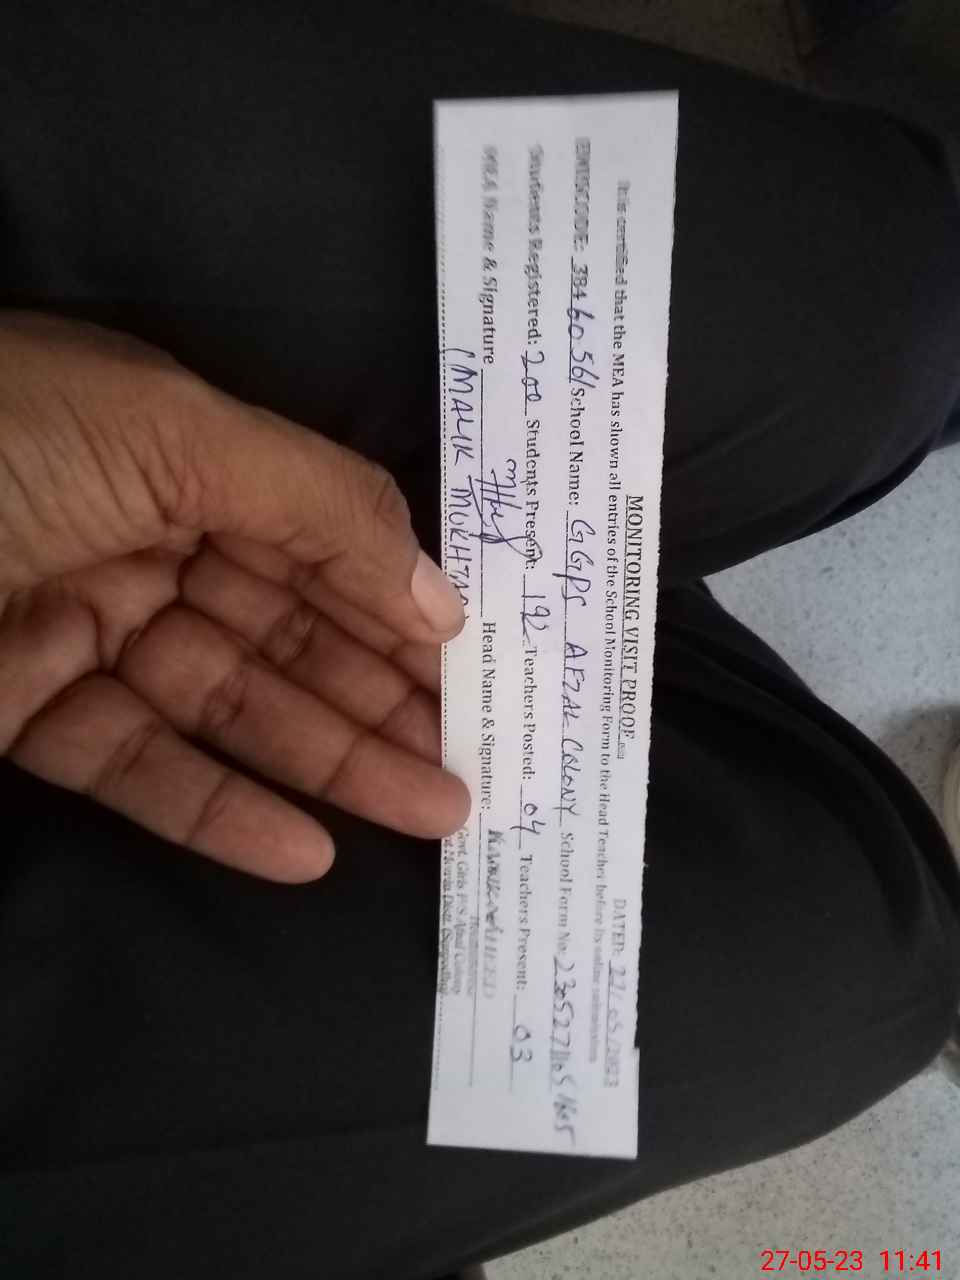 MONITORING VISIT PROOF
DATED: 27/05/2023
It is certified that the MEA has shown all entries of the School Monitoring Form to the Head Teacher before its online submission
EMISCODE: 38460561 School Name: GGPS AFZAL COLONY School Form No: 230527
Students Registered: 200 Students Present: 192 Teachers Posted: 04 Teachers Present: 03
MEA Name & Signature Head Name & Signature:
(MALIK MUKHTAR)
Govt. Girls P/S Afzal Colony
27-05-23 11:41